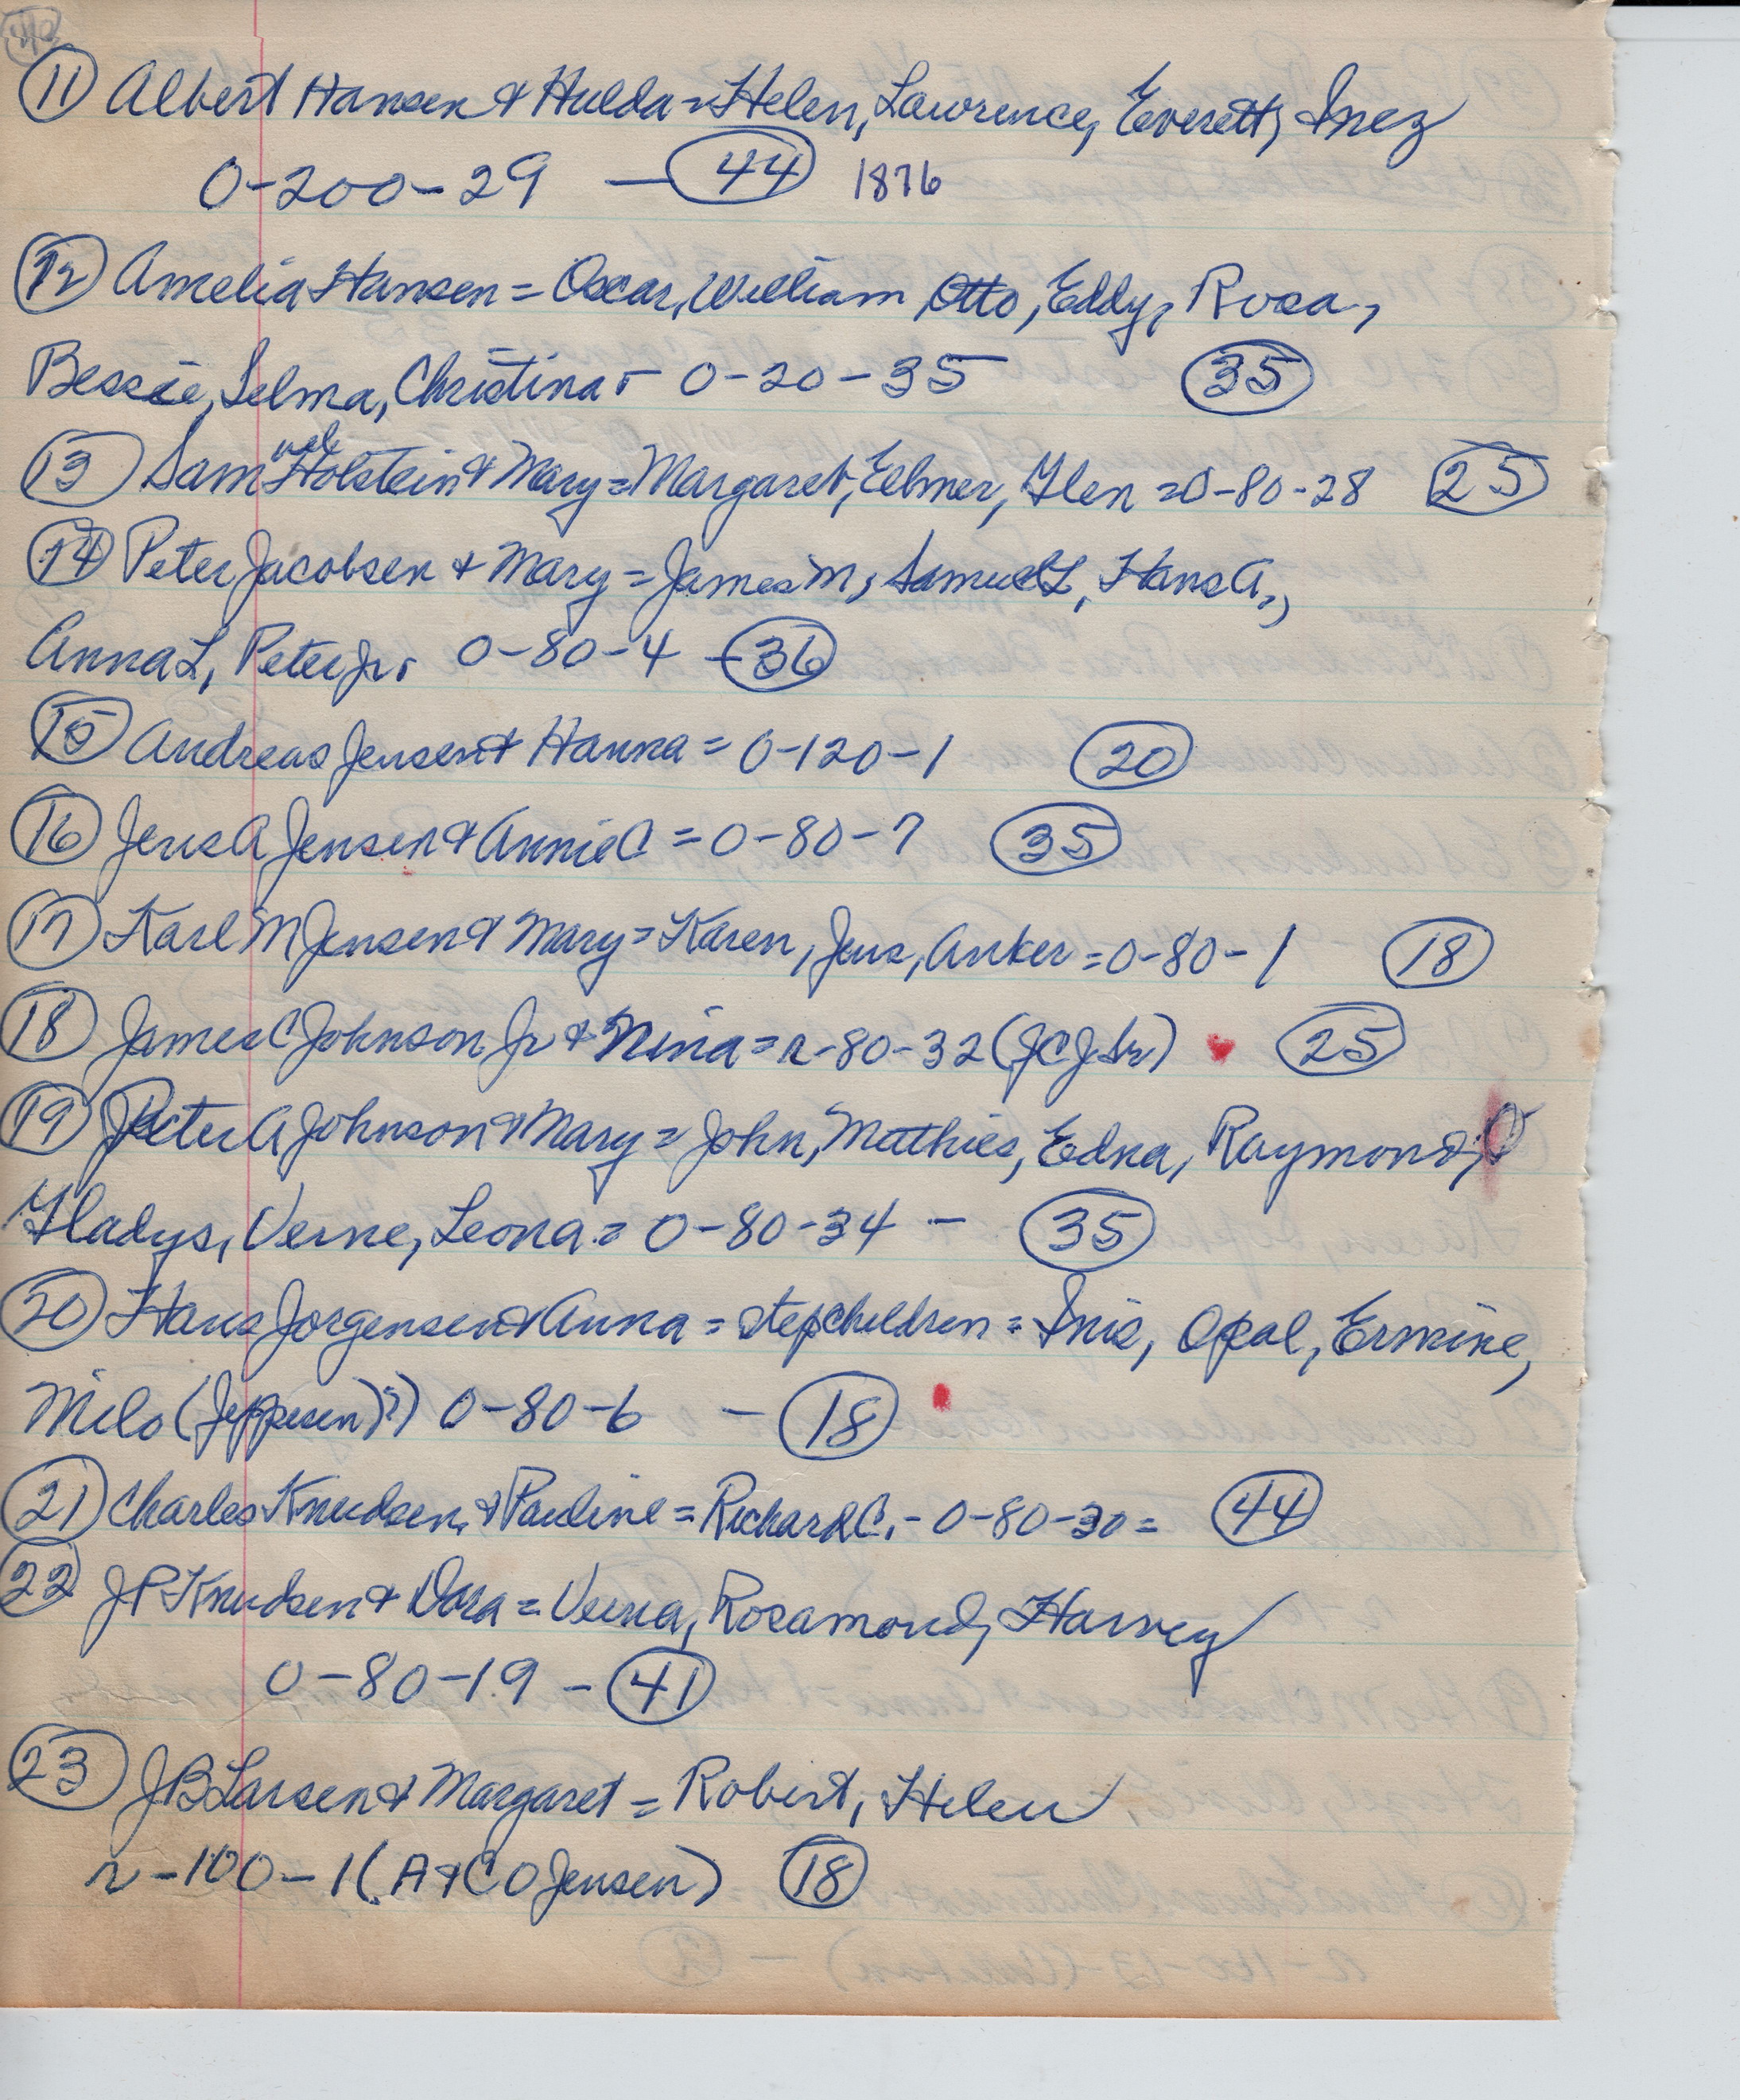 11 Albert Hansen & Hulda = Helen, Lawrence, Everett, Inez
0-200-29 — 44 1876
12 Amelia Hansen = Oscar, William, Otto, Eddy, Rosa,
Bessie, Selma, Christina - 0-20-35 35
13 Sam Holstein & Mary = Margaret, Elmer, Glen = 0-80-28 25
14 Peter Jacobsen & Mary = James M, Samuel L, Hans A.,
Anna L, Peter Jr. 0-80-4 - 36
15 Andreas Jensen & Hanna = 0-120-1 20
16 Jens A Jensen & Annie C = 0-80-7 35
17 Karl M Jensen & Mary = Karen, Jens, Anker = 0-80-1 18
18 James C Johnson Jr & Nina = r-80-32 (JCJ Sr) 25
19 Peter A Johnson & Mary = John, Matthies, Edna, Raymond,
Gladys, Verne, Leona = 0-80-34 - 35
20 Hans Jorgensen & Anna = stepchildren = Inis, Opal, Ermine,
Milo (Jeppesen)?) 0-80-6 - 18
21 Charles Knudsen & Pauline = Richard C. - 0-80-30 = 44
22 JP Knudsen & Dora = Verna, Rosamond, Harvey
0-80-19 - 41
23 JB Larsen & Margaret = Robert, Helen
r-100-1 (A & C O Jensen) 18